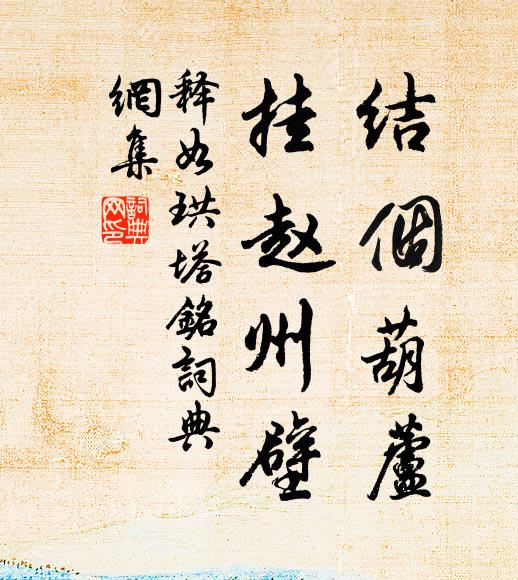 結個葫蘆
挂赵州壁
释如珙塔銘詞典
網集
詞典
网印